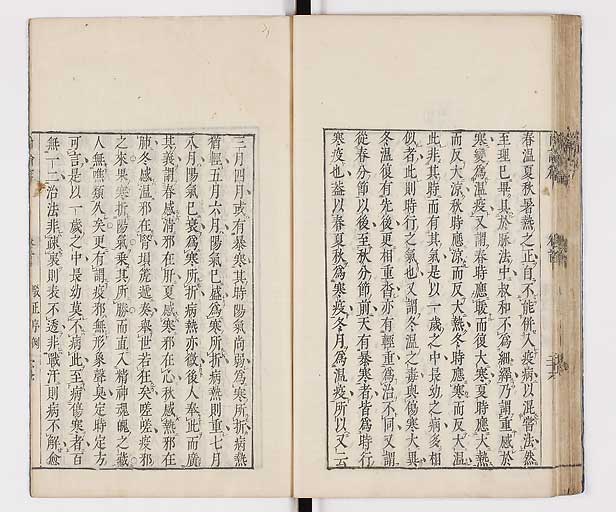 春溫夏秋暑熱之正自不能併入疫病以混常法然
至理已畢具於脈法中叔和不爲細繹乃謂重感於
寒變爲溫疫又謂春時應暖而復大寒夏時應大熱
而反大涼秋時應涼而反大熱冬時應寒而反大溫
此非其時而有其氣是以一歲之中長幼之病多相
似者此則時行之氣也又謂冬溫之毒與傷寒大異
冬溫復有先後更相重沓亦有輕重爲治不同又謂
從春分節以後至秋分節前天有暴寒者皆爲時行
寒疫也蓋以春夏秋爲寒疫冬月爲溫疫所以又云
三月四月或有暴寒其時陽氣尚弱爲寒所折病熱
猶輕五月六月陽氣已盛爲寒所折病熱則重七月
八月陽氣已衰爲寒所折病熱亦微後人奉此而廣
其義謂春感清邪在肝夏感寒邪在心秋感熱邪在
肺冬感溫邪在腎塤箎遞奏舉世若狂矣嗟嗟疫邪
之來果寒折陽氣乘其所勝而直入精神魂魄之藏
人無噍類久矣更有謂疫邪無形象聲臭定時定方
可言是以一歲之中長幼莫不病此至病傷寒者百
無一二治法非疎裏則表不透非戰汗則病不解愈
駁正序例